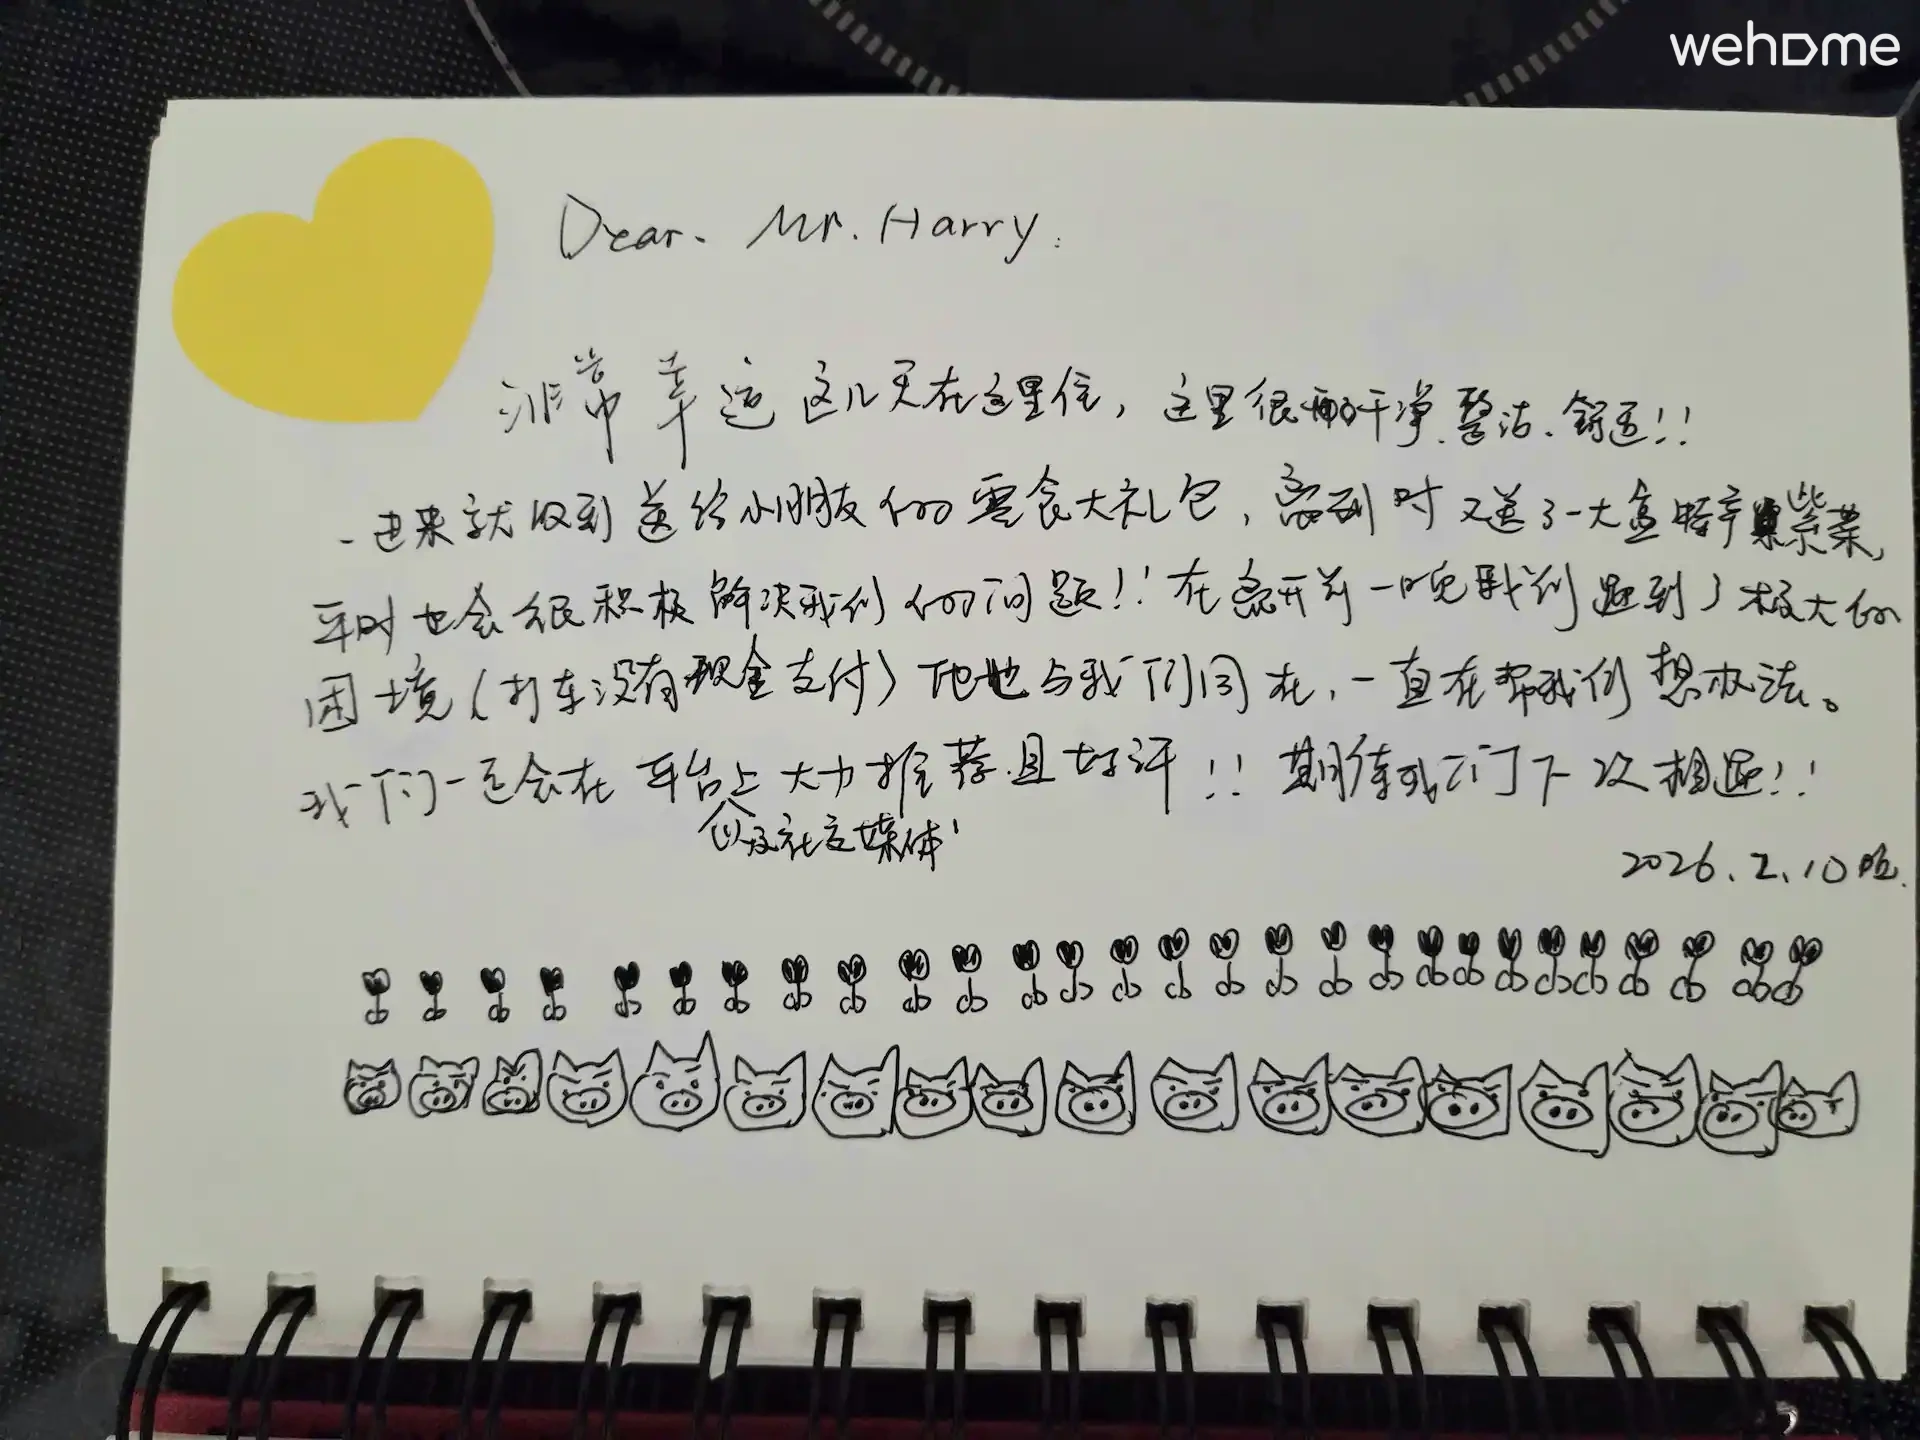 wehome
Dear. Mr. Harry:
非常幸运这几天在这里住，这里很干净.整洁.舒适!!
一进来就收到送给小朋友们的零食大礼包，离到时又送了一大盒特产紫菜，
平时也会很积极解决我们的问题!!在离开前一晚我们遇到了极大的
困境(打车没有现金支付)他也与我们同在，一直在帮我们想办法。
我们一定会在平台上大力推荐且好评!!期待我们下次相遇!!
以及社交媒体
2026.2.10